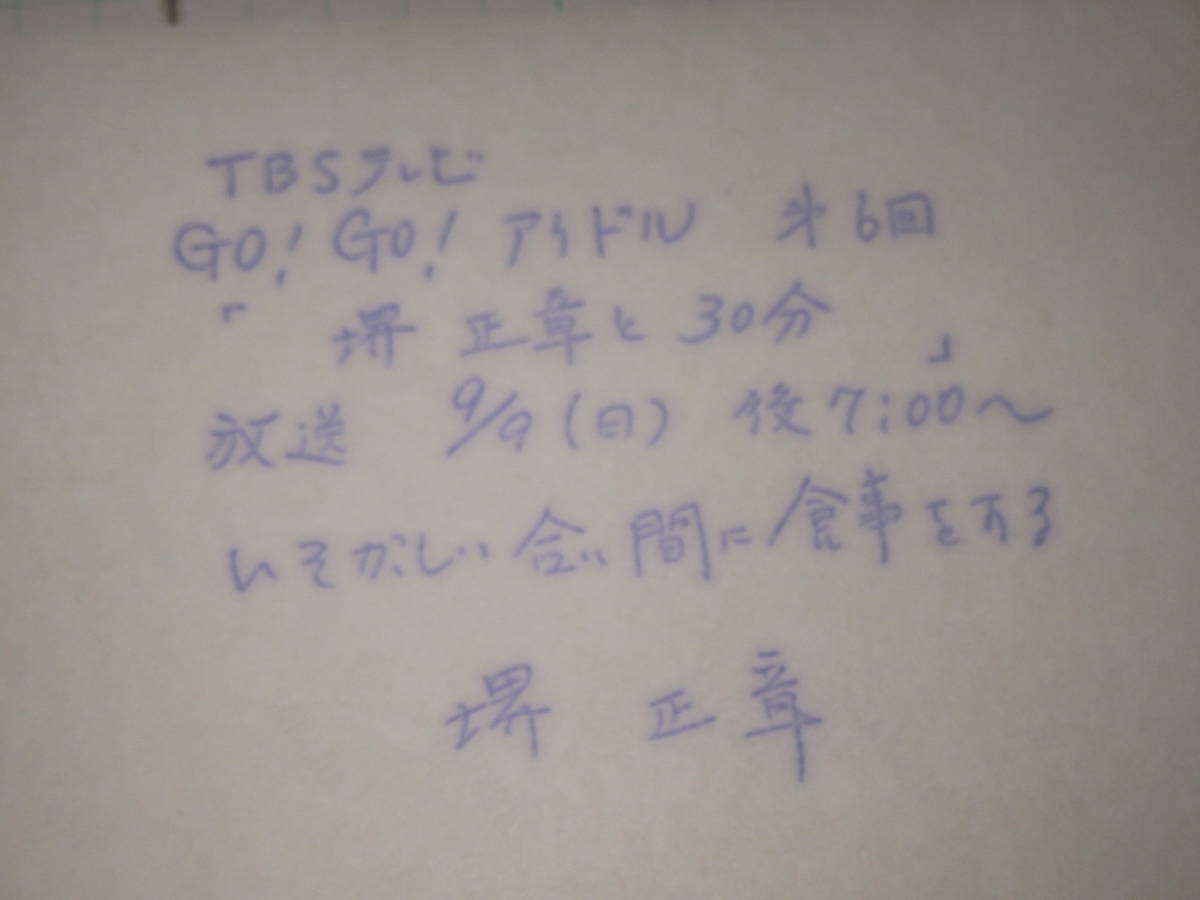 TBSテレビ
GO! GO! アイドル 第6回
「 堺 正章と30分 」
放送 9/9(日) 後7:00〜
いそがしい合い間に食事をする
堺 正章